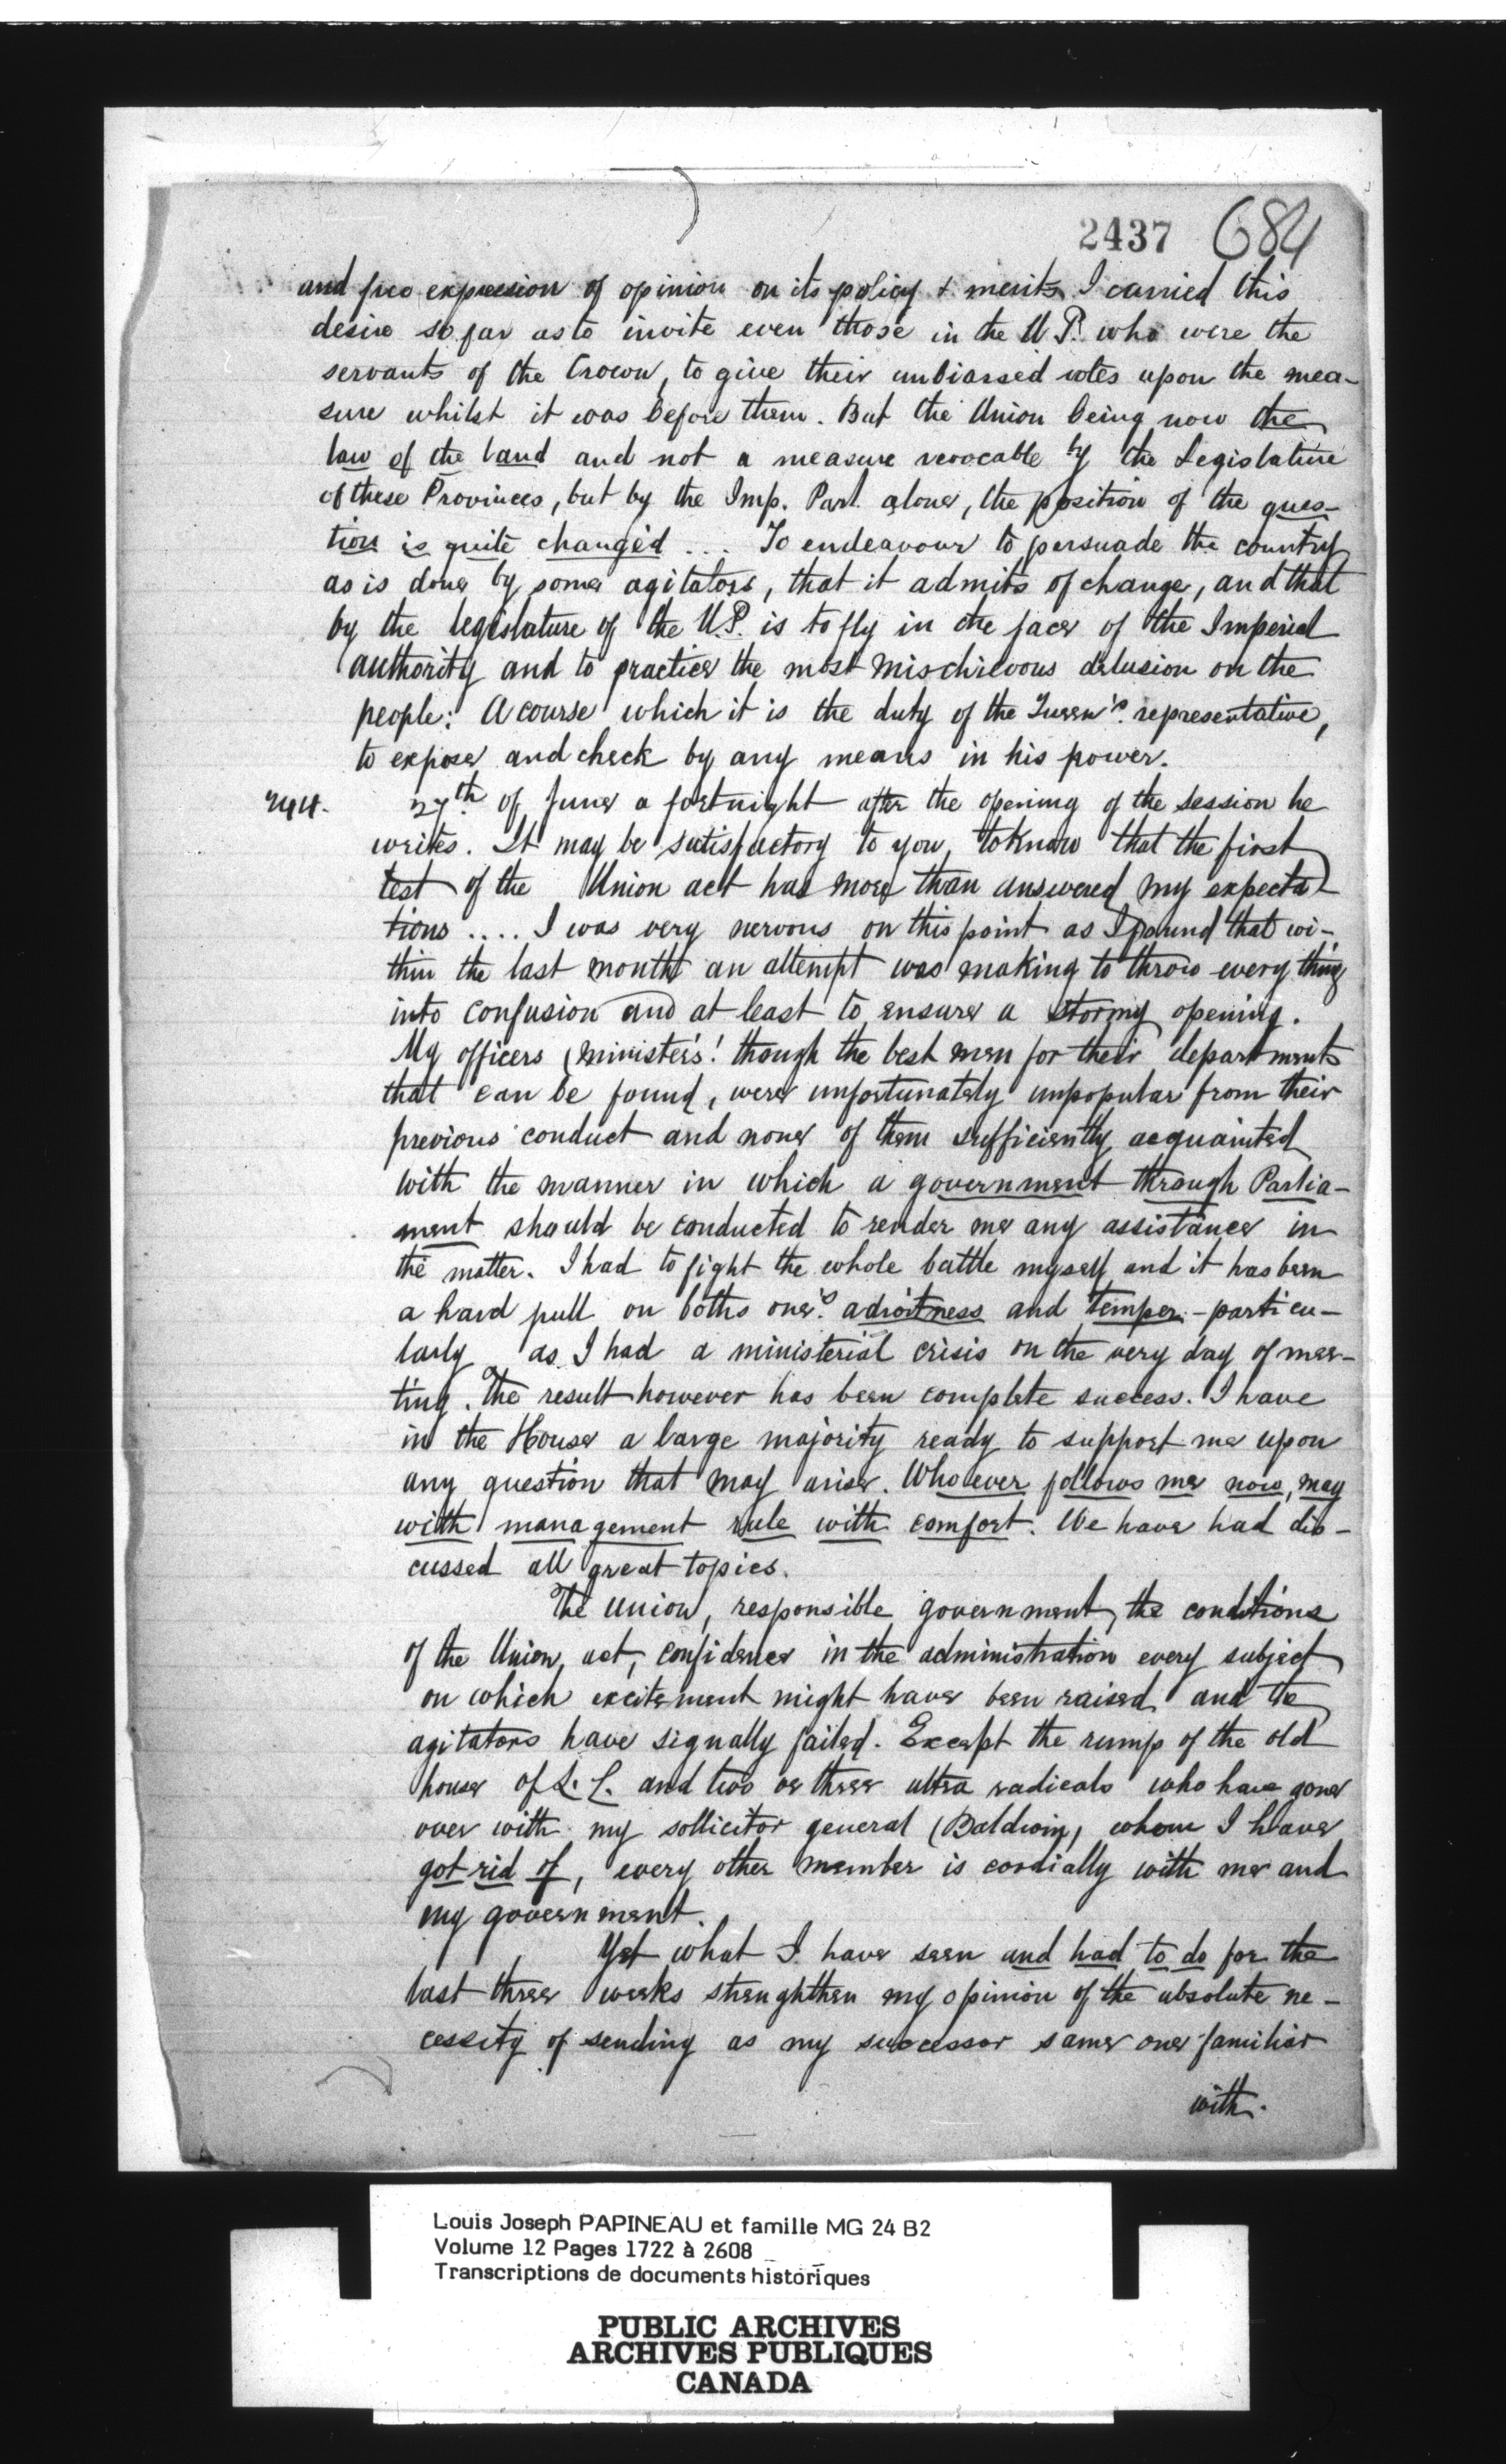 2437 684
and free expression of opinion on its policy & merits I carried this
desire so far as to invite even those in the U P. who were the
servants of the Crown, to give their unbiassed votes upon the mea-
sure whilst it was before them. But the Union being now the
law of the land and not a measure revocable by the Legislature
of these Provinces, but by the Imp. Parl. alone, the position of the ques-
tion is quite changed ... To endeavour to persuade the country
as is done by some agitators, that it admits of change, and that
by the legislature of the U.P. is to fly in the face of the Imperial
authority and to practice the most mischievous delusion on the
people: A course which it is the duty of the Queen's representative,
to expose and check by any means in his power.
27th of June a fortnight after the opening of the session he
writes. It may be satisfactory to you, to know that the first
test of the Union act has more than answered my expecta-
tions .... I was very nervous on this point as I found that wi-
thin the last month an attempt was making to throw every thing
into confusion and at least to ensure a stormy opening.
My officers (ministers! though the best men for their departments
that can be found, were unfortunately unpopular from their
previous conduct and none of them sufficiently acquainted
with the manner in which a government through Parlia-
ment should be conducted to render me any assistance in
the matter. I had to fight the whole battle myself and it has been
a hard pull on boths one's adroitness and temper - particu-
larly as I had a ministerial crisis on the very day of mee-
ting. The result however has been complete success. I have
in the House a large majority ready to support me upon
any question that may arise. Whoever follows me now, may
with management rule with comfort. We have had dis-
cussed all great topics.
The Union, responsible government, the conditions
of the Union act, confidence in the administration every subject
on which excitement might have been raised and the
agitators have signally failed. Except the rump of the old
house of L. C. and two or three ultra radicals who have gone
over with my sollicitor general (Baldwin) whom I have
got rid of, every other member is cordially with me and
my government.
Yet what I have seen and had to do for the
last three weeks strenghthen my opinion of the absolute ne-
cessity of sending as my successor some one familiar
with.
Louis Joseph PAPINEAU et famille MG 24 B2
Volume 12 Pages 1722 à 2608
Transcriptions de documents historiques
PUBLIC ARCHIVES
ARCHIVES PUBLIQUES
CANADA